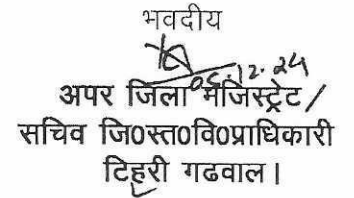 भवदीय
05.12.24
अपर जिला मजिस्ट्रेट/
सचिव जि0स्त0वि0प्राधिकारी
टिहरी गढवाल।